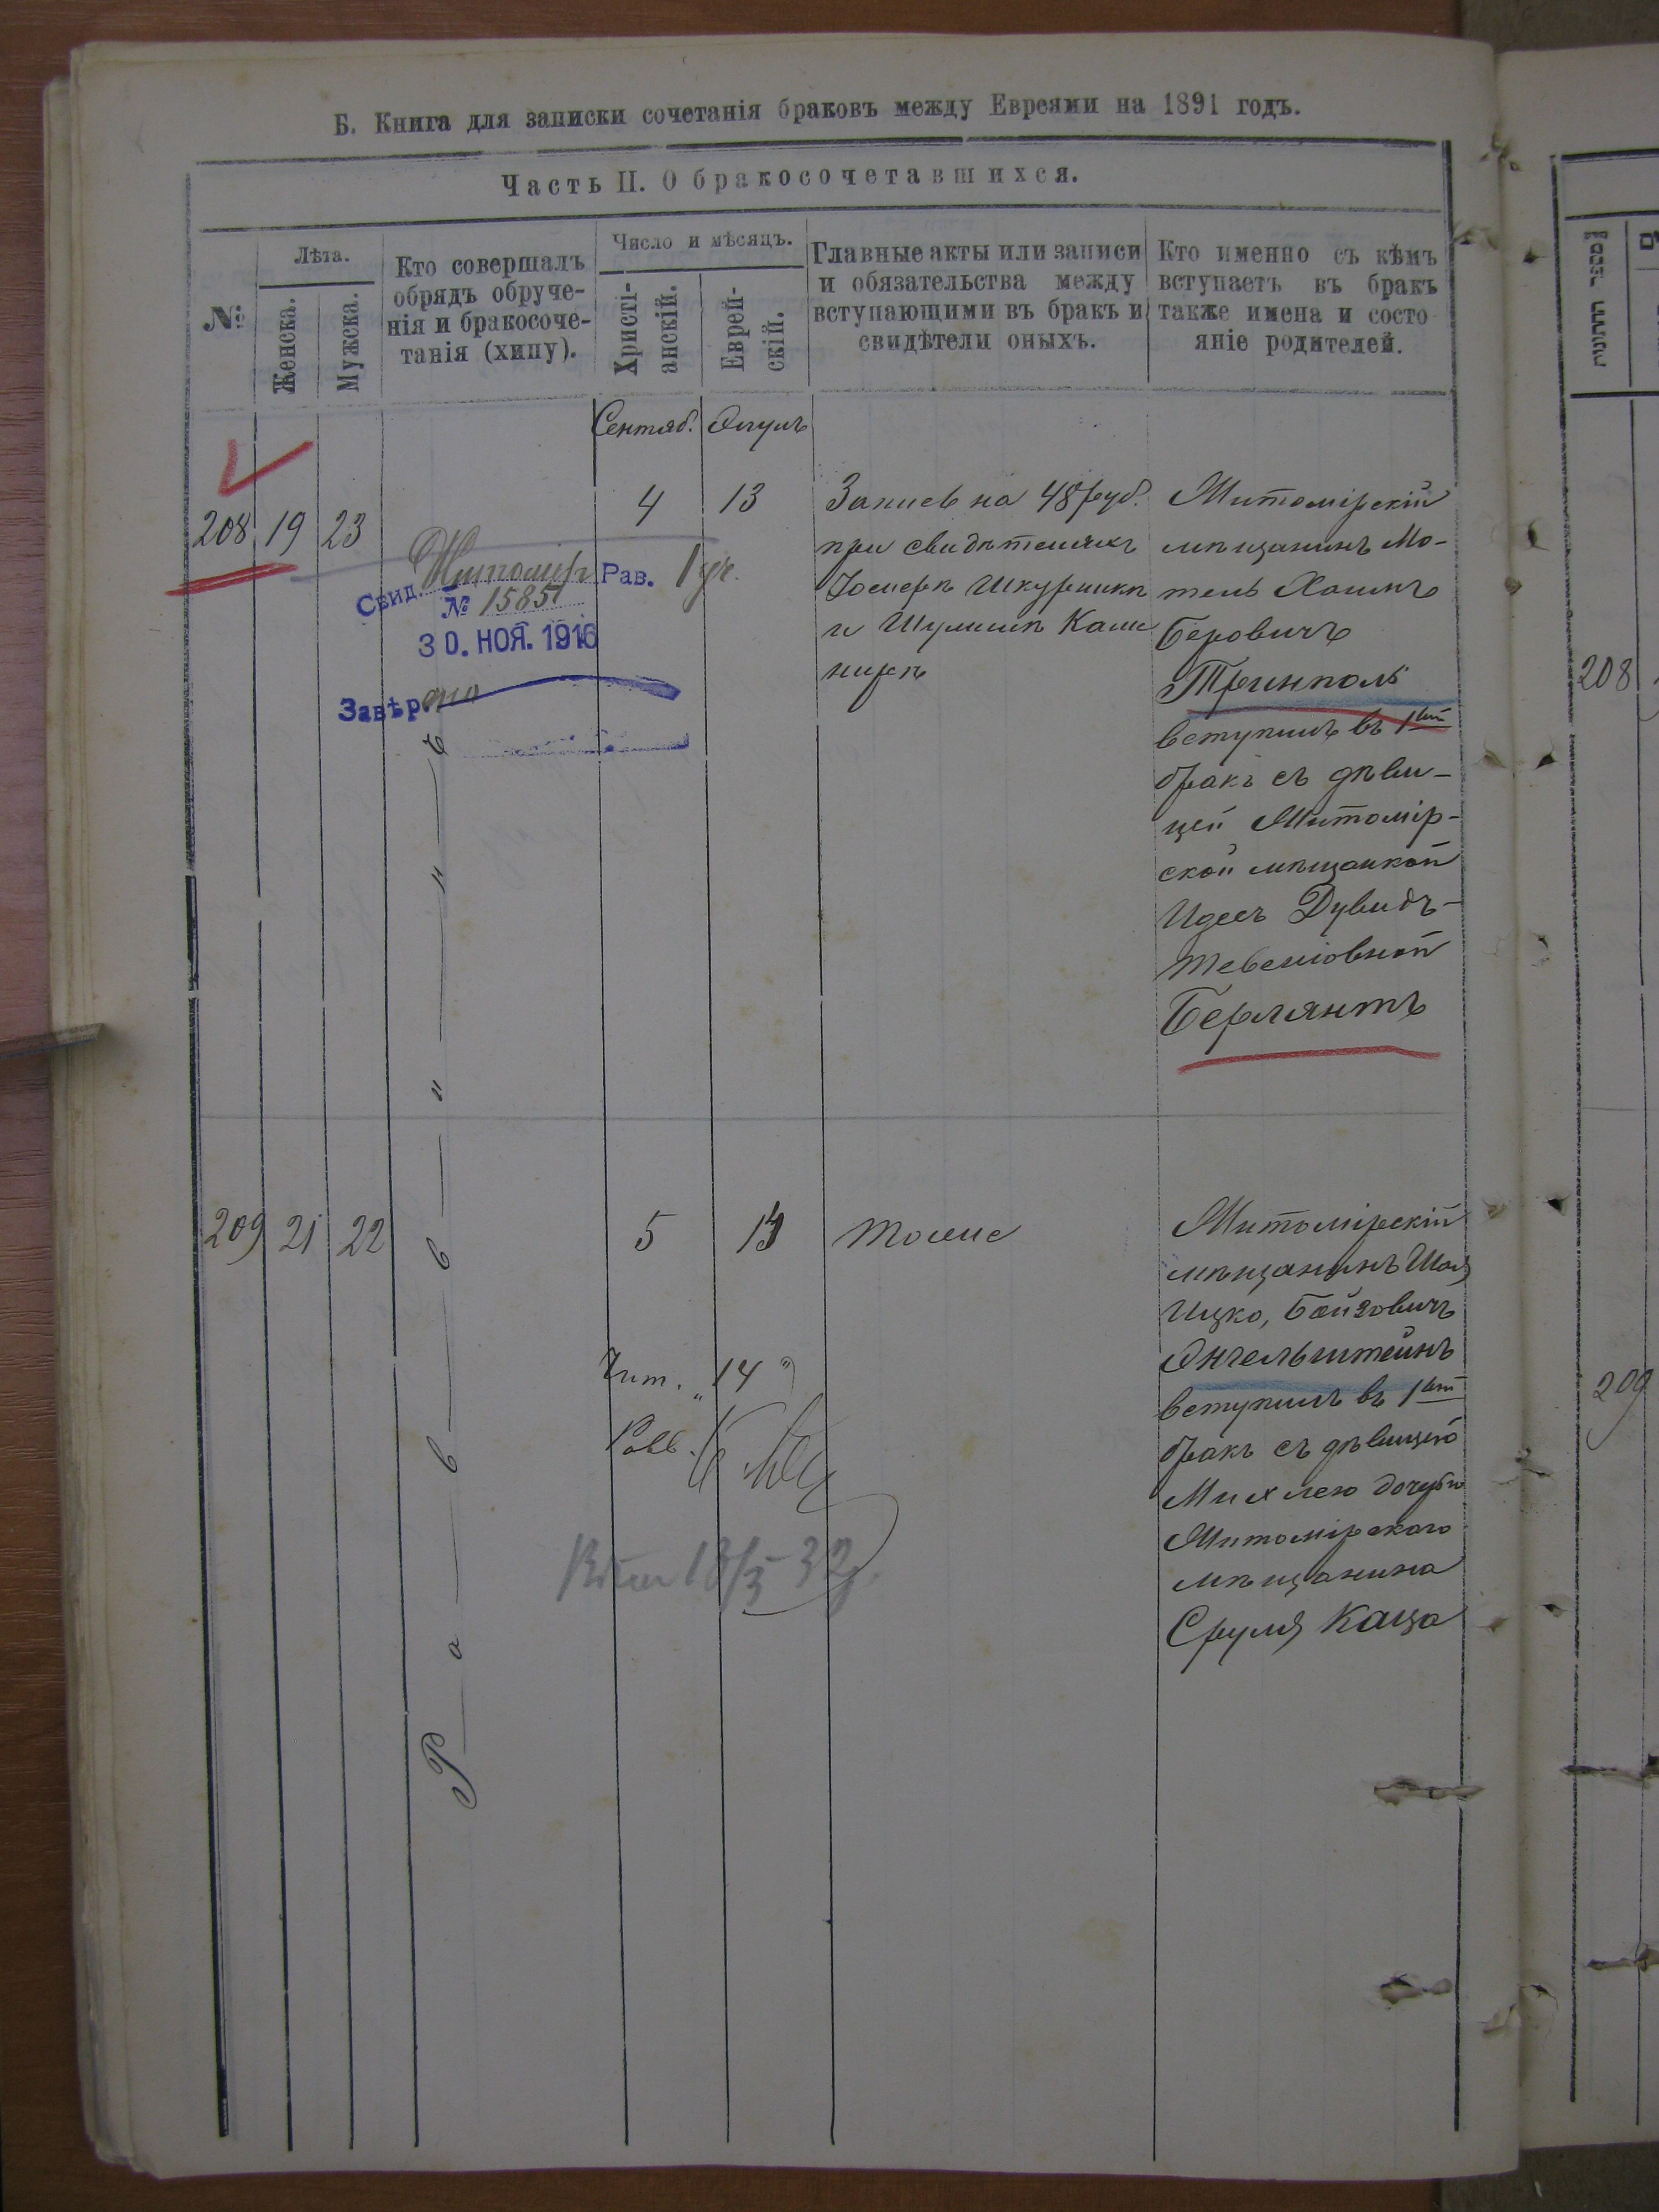 Б. Книга для записки сочетанія браковъ между Евреями на 1891 годъ.
Часть II. О бракосочетавшихся.
№
Лѣта.
Женска.
Мужска.
Кто совершалъ
обрядъ обруче-
нія и бракосоче-
танія (хипу).
Число и мѣсяцъ.
Христі-
анскій.
Еврей-
скій.
Главные акты или записи
и обязательства между
вступающими въ бракъ и
свидѣтели оныхъ.
Кто именно съ кѣмъ
вступаетъ въ бракъ
также имена и состо
яніе родителей.
Сентяб. Элулъ
208 19 23
Свид. Житомір Рав.
№ 15851
30. НОЯ. 1916
Завѣр.
4 13
Запись на 48 руб.
при свидѣтеляхъ
Іосифѣ Шкурникѣ
и Шулимѣ Каш
нирѣ
Житомірскій
мѣщанинъ Мо-
тель Хаимъ
Беровичъ
Тринполь
вступилъ въ 1ый
бракъ съ дѣви-
цей Житомір-
ской мѣщанкой
Идесъ Дувидъ-
Тевеліовной
Берлянтъ
Р а в в и н ъ
209 21 22
5 13 Тоже
Чит. „14"
Равв.
Житомірскій
мѣщанинъ Шая
Ицко, Бейзовичъ
Энгельштейнъ
вступилъ въ 1ый
бракъ съ дѣвицею
Михлею дочерью
Житомірского
мѣщанина
Сруля Каца
208
209